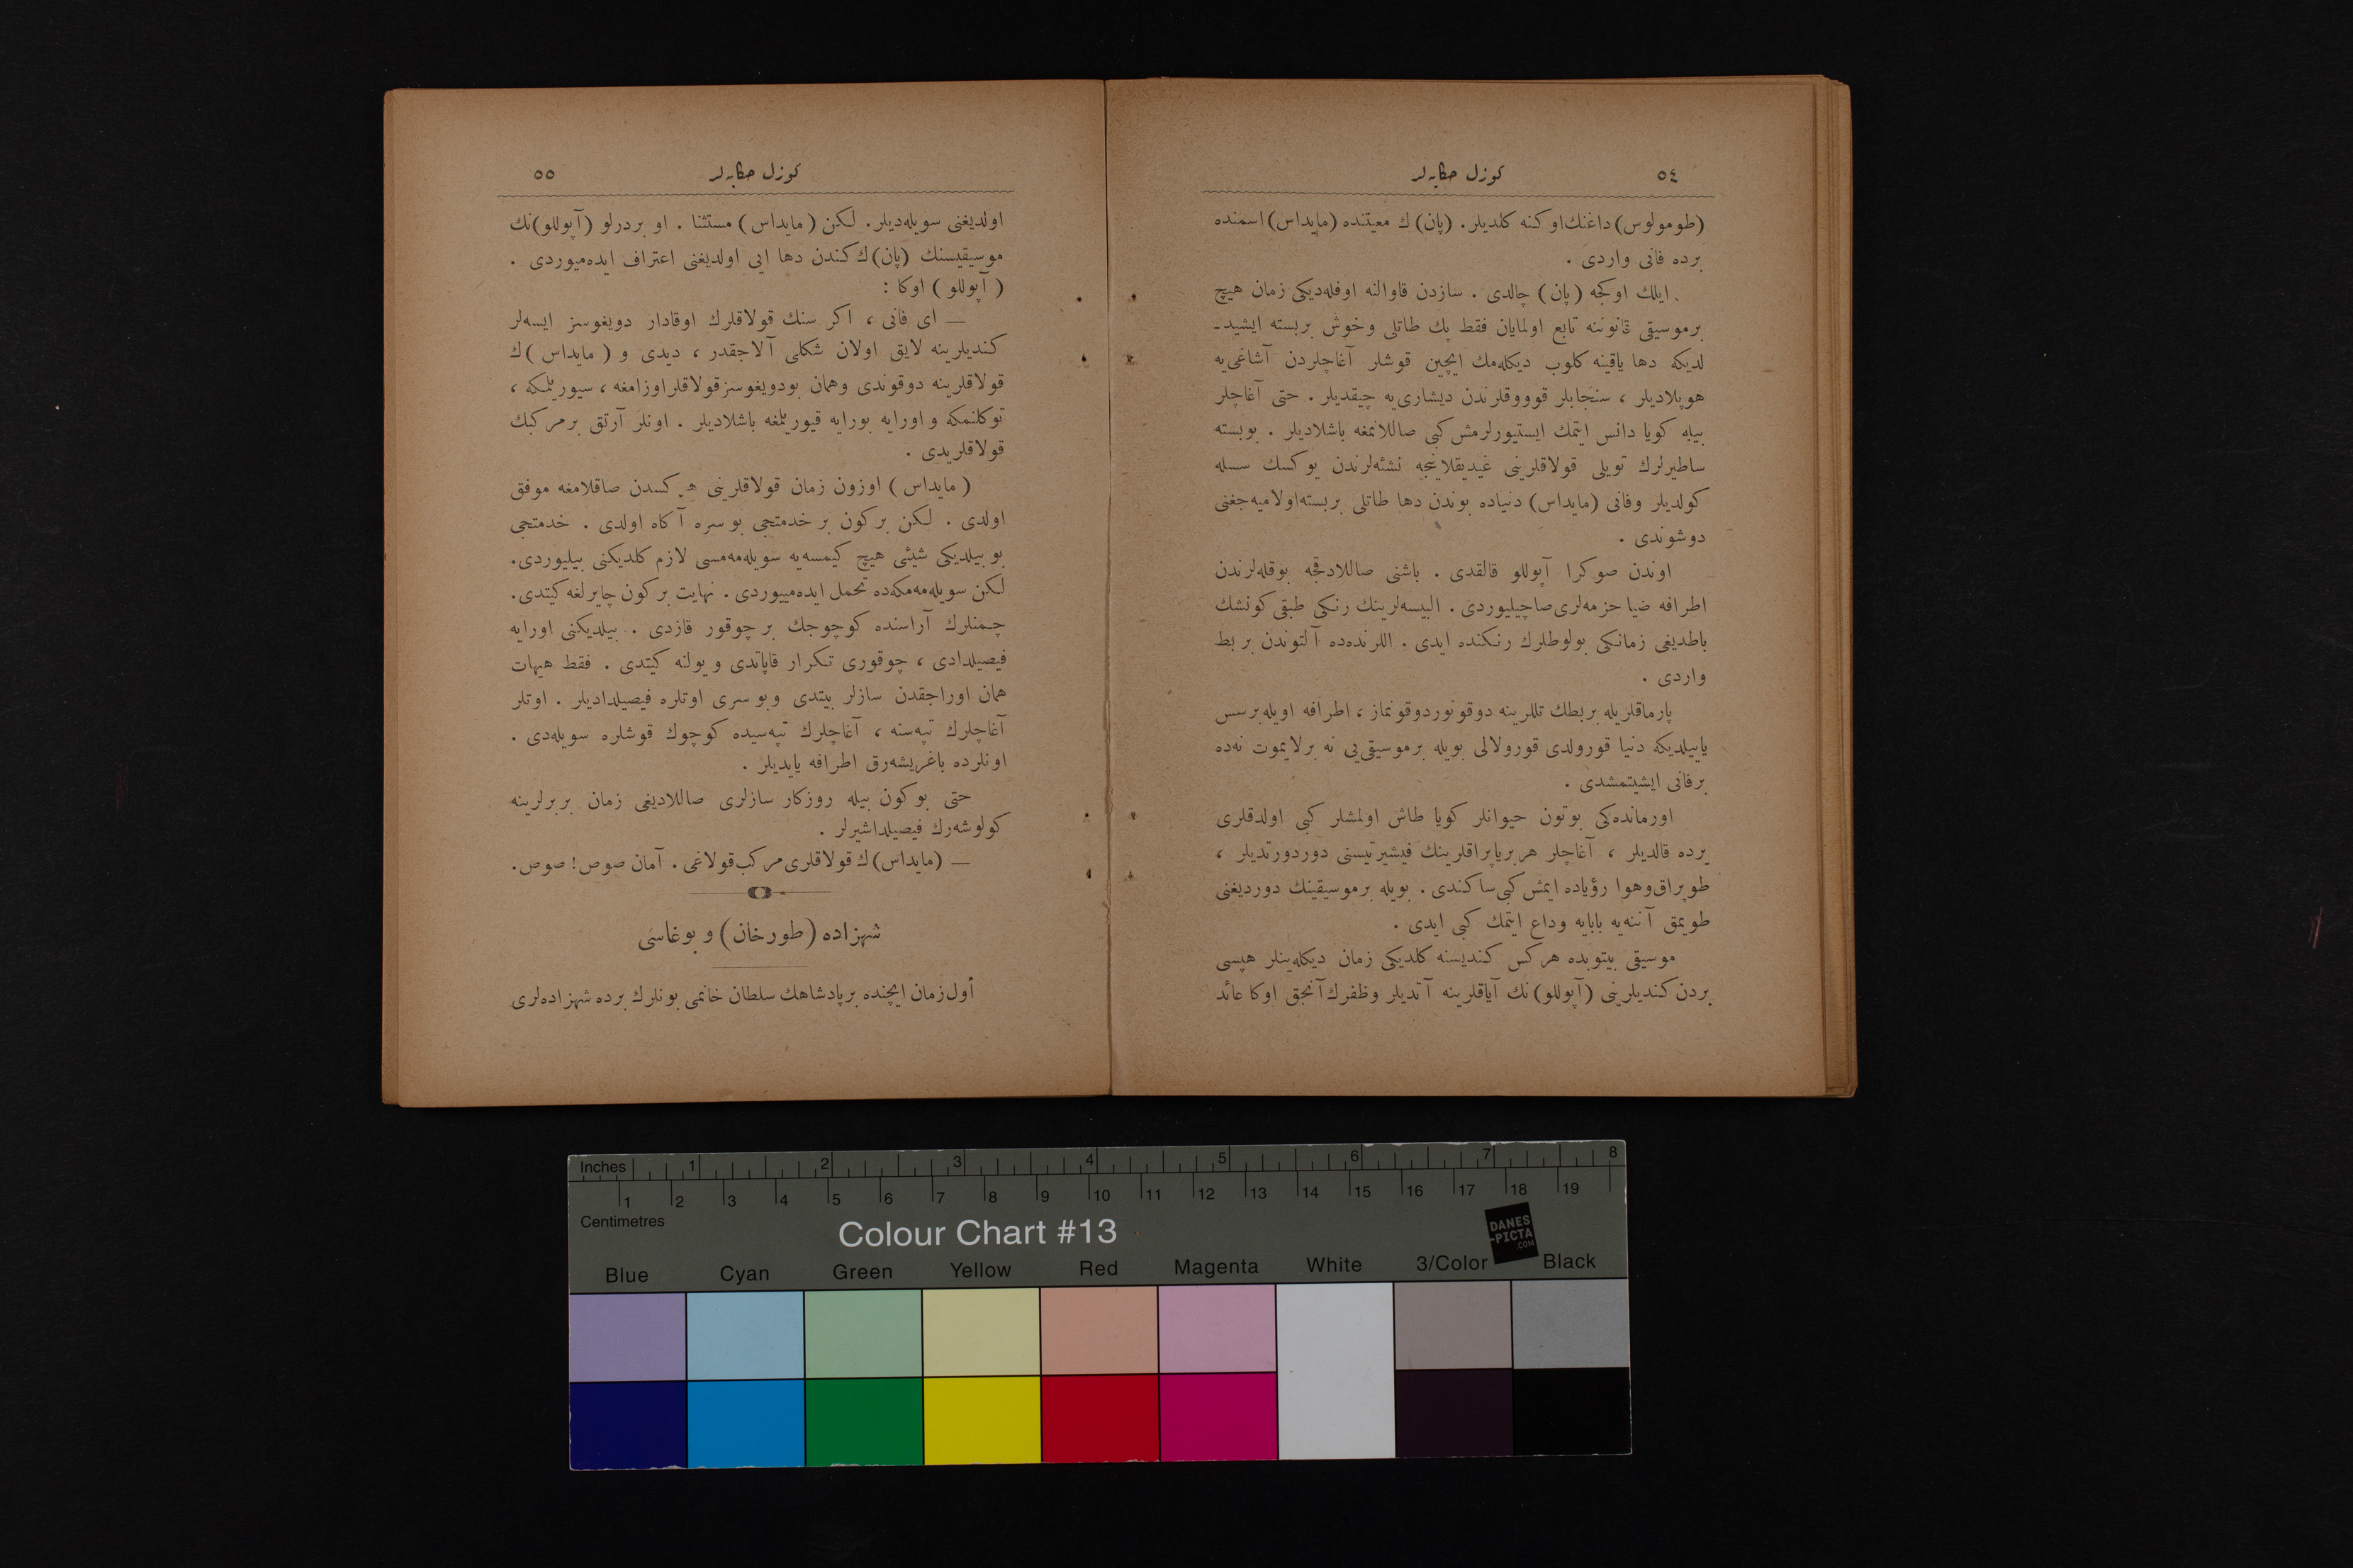 ٥٤
كوزل حكايه‌لر
(طومولوس) داغنك اوكنه كلديلر. (پان) ك معيتنده (مايداس) اسمنده
برده فانى واردى .
ايلك اوكجه (پان) چالدى . سازدن قاوالنه اوفله‌ديكى زمان هيچ
برموسيقى قانوننه تابع اولمايان فقط پك طاتلى وخوش بربسته ايشيد-
لديكه دها ياقينه كلوب ديكله‌مك ايچين قوشلر آغاچلردن آشاغى‌يه
هوپلاديلر ، سنجابلر قوووقلرندن ديشارى‌يه چيقديلر . حتى آغاچلر
بيله كويا دانس ايتمك ايستيورلرمش كبى صاللانمغه باشلاديلر . بوبسته
ساطيرلرك تويلى قولاقلرينى غيديقلاينجه نشئه‌لرندن يوكسك سسله
كولديلر وفانى (مايداس) دنياده بوندن دها طاتلى بربسته اولاميه‌جغنى
دوشوندى .
اوندن صوكرا آپوللو قالقدى . باشنى صاللادقجه بوقله‌لرندن
اطرافه ضيا حزمه‌لرى صاچيليوردى . البيسه‌لرينك رنكى طبقى كونشك
باطديغى زمانكى بولوطلرك رنكنده ايدى . اللرنده‌ده آلتوندن بربط
واردى .
پارماقلريله بربطك تللرينه دوقونوردوقونماز ، اطرافه اويله برسس
ياييلديكه دنيا قورولدى قورولالى بويله برموسيقى‌يى نه برلايموت نه‌ده
برفانى ايشيتمشدى .
اورمانده‌كى بوتون حيوانلر كويا طاش اولمشلر كبى اولدقلرى
يرده قالديلر ، آغاچلر هربرياپراقلرينك فيشيرتيسنى دوردورتديلر ،
طوپراق وهوا رؤياده ايمش كبى ساكندى . بويله برموسيقينك دورديغنى
طويمق آننه‌يه بابايه وداع ايتمك كبى ايدى .
موسيقى بيتوبده هركس كنديسنه كلديكى زمان ديكله‌ينلر هپسى
بردن كنديلرينى (آپوللو) نك آياقلرينه آتديلر وظفرك آنجق اوكا عائد
٥٥
كوزل حكايه‌لر
اولديغنى سويله‌ديلر. لكن (مايداس) مستثنا . او بردرلو (آپوللو)نك
موسيقيسنك (پان)ك كندن دها ايى اولديغنى اعتراف ايده‌ميوردى .
(آپوللو) اوكا :
— اى فانى ، اكر سنك قولاقلرك اوقادار دويغوسز ايسه‌لر
كنديلرينه لايق اولان شكلى آلاجقدر ، ديدى و (مايداس)ك
قولاقلرينه دوقوندى وهمان بودويغوسزقولاقلر اوزامغه ، سيوريلمكه ،
توكلنمكه و اورايه بورايه قيوريلمغه باشلاديلر . اونلر آرتق برمركبك
قولاقلريدى .
(مايداس) اوزون زمان قولاقلرينى هركسدن صاقلامغه موفق
اولدى . لكن بركون بر خدمتجى بوسره آكاه اولدى . خدمتجى
بو بيلديكى شيئى هيچ كيمسه‌يه سويله‌مه‌مسى لازم كلديكنى بيليوردى.
لكن سويله‌مه‌مكه‌ده تحمل ايده‌مييوردى . نهايت بركون چايرلغه كيتدى.
چمنلرك آراسنده كوچوجك بر چوقور قازدى . بيلديكنى اورايه
فيصيلدادى ، چوقورى تكرار قاپاتدى و يولنه كيتدى . فقط هيهات
همان اوراجقدن سازلر بيتدى وبوسرى اوتلره فيصيلداديلر . اوتلر
آغاچلرك تپه‌سنه ، آغاچلرك تپه‌سيده كوچوك قوشلره سويله‌دى .
اونلرده باغريشه‌رق اطرافه يايديلر .
حتى بوكون بيله روزكار سازلرى صاللاديغى زمان بربرلرينه
كولوشه‌رك فيصيلداشيرلر .
— (مايداس)ك قولاقلرى مركب قولاغى . آمان صوص! صوص.
شهزاده (طورخان) و بوغاسى
أول زمان ايچنده برپادشاهك سلطان خانمى بونلرك برده شهزاده‌لرى
Inches 1 2 3 4 5 6 7 8
1 2 3 4 5 6 7 8 9 10 11 12 13 14 15 16 17 18 19
Centimetres
Colour Chart #13
DANES
-PICTA
.COM
Blue Cyan Green Yellow Red Magenta White 3/Color Black